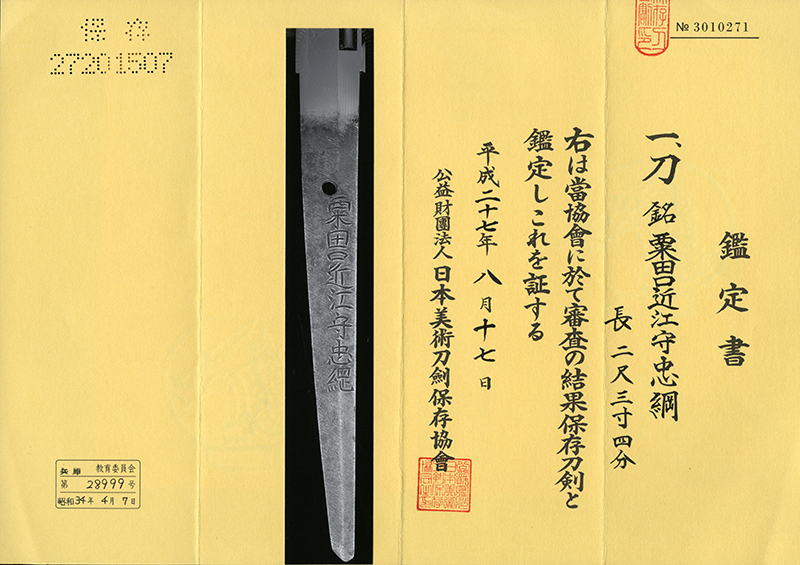 № 3010271
鑑定書
一、刀 銘 粟田口近江守忠綱
長 二尺三寸四分
右は當協會に於て審査の結果保存刀剣と
鑑定しこれを証する
平成二十七年 八月十七日
公益財團法人 日本美術刀劍保存協會
粟田口近江守忠綱
保存
27201507
兵庫 教育委員会
第 28999 号
昭和34年 4月 7日